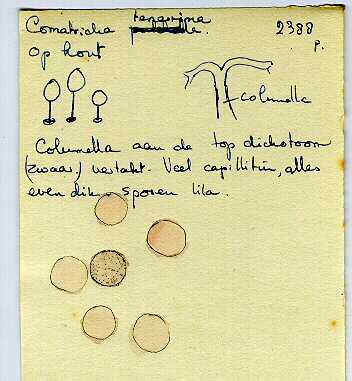 Comatricha tenerrima
2388
P.
op hout
columella
Columella aan de top dichotoom
(zwaar) vertakt. Veel capillitium, alles
even dik - sporen lila.